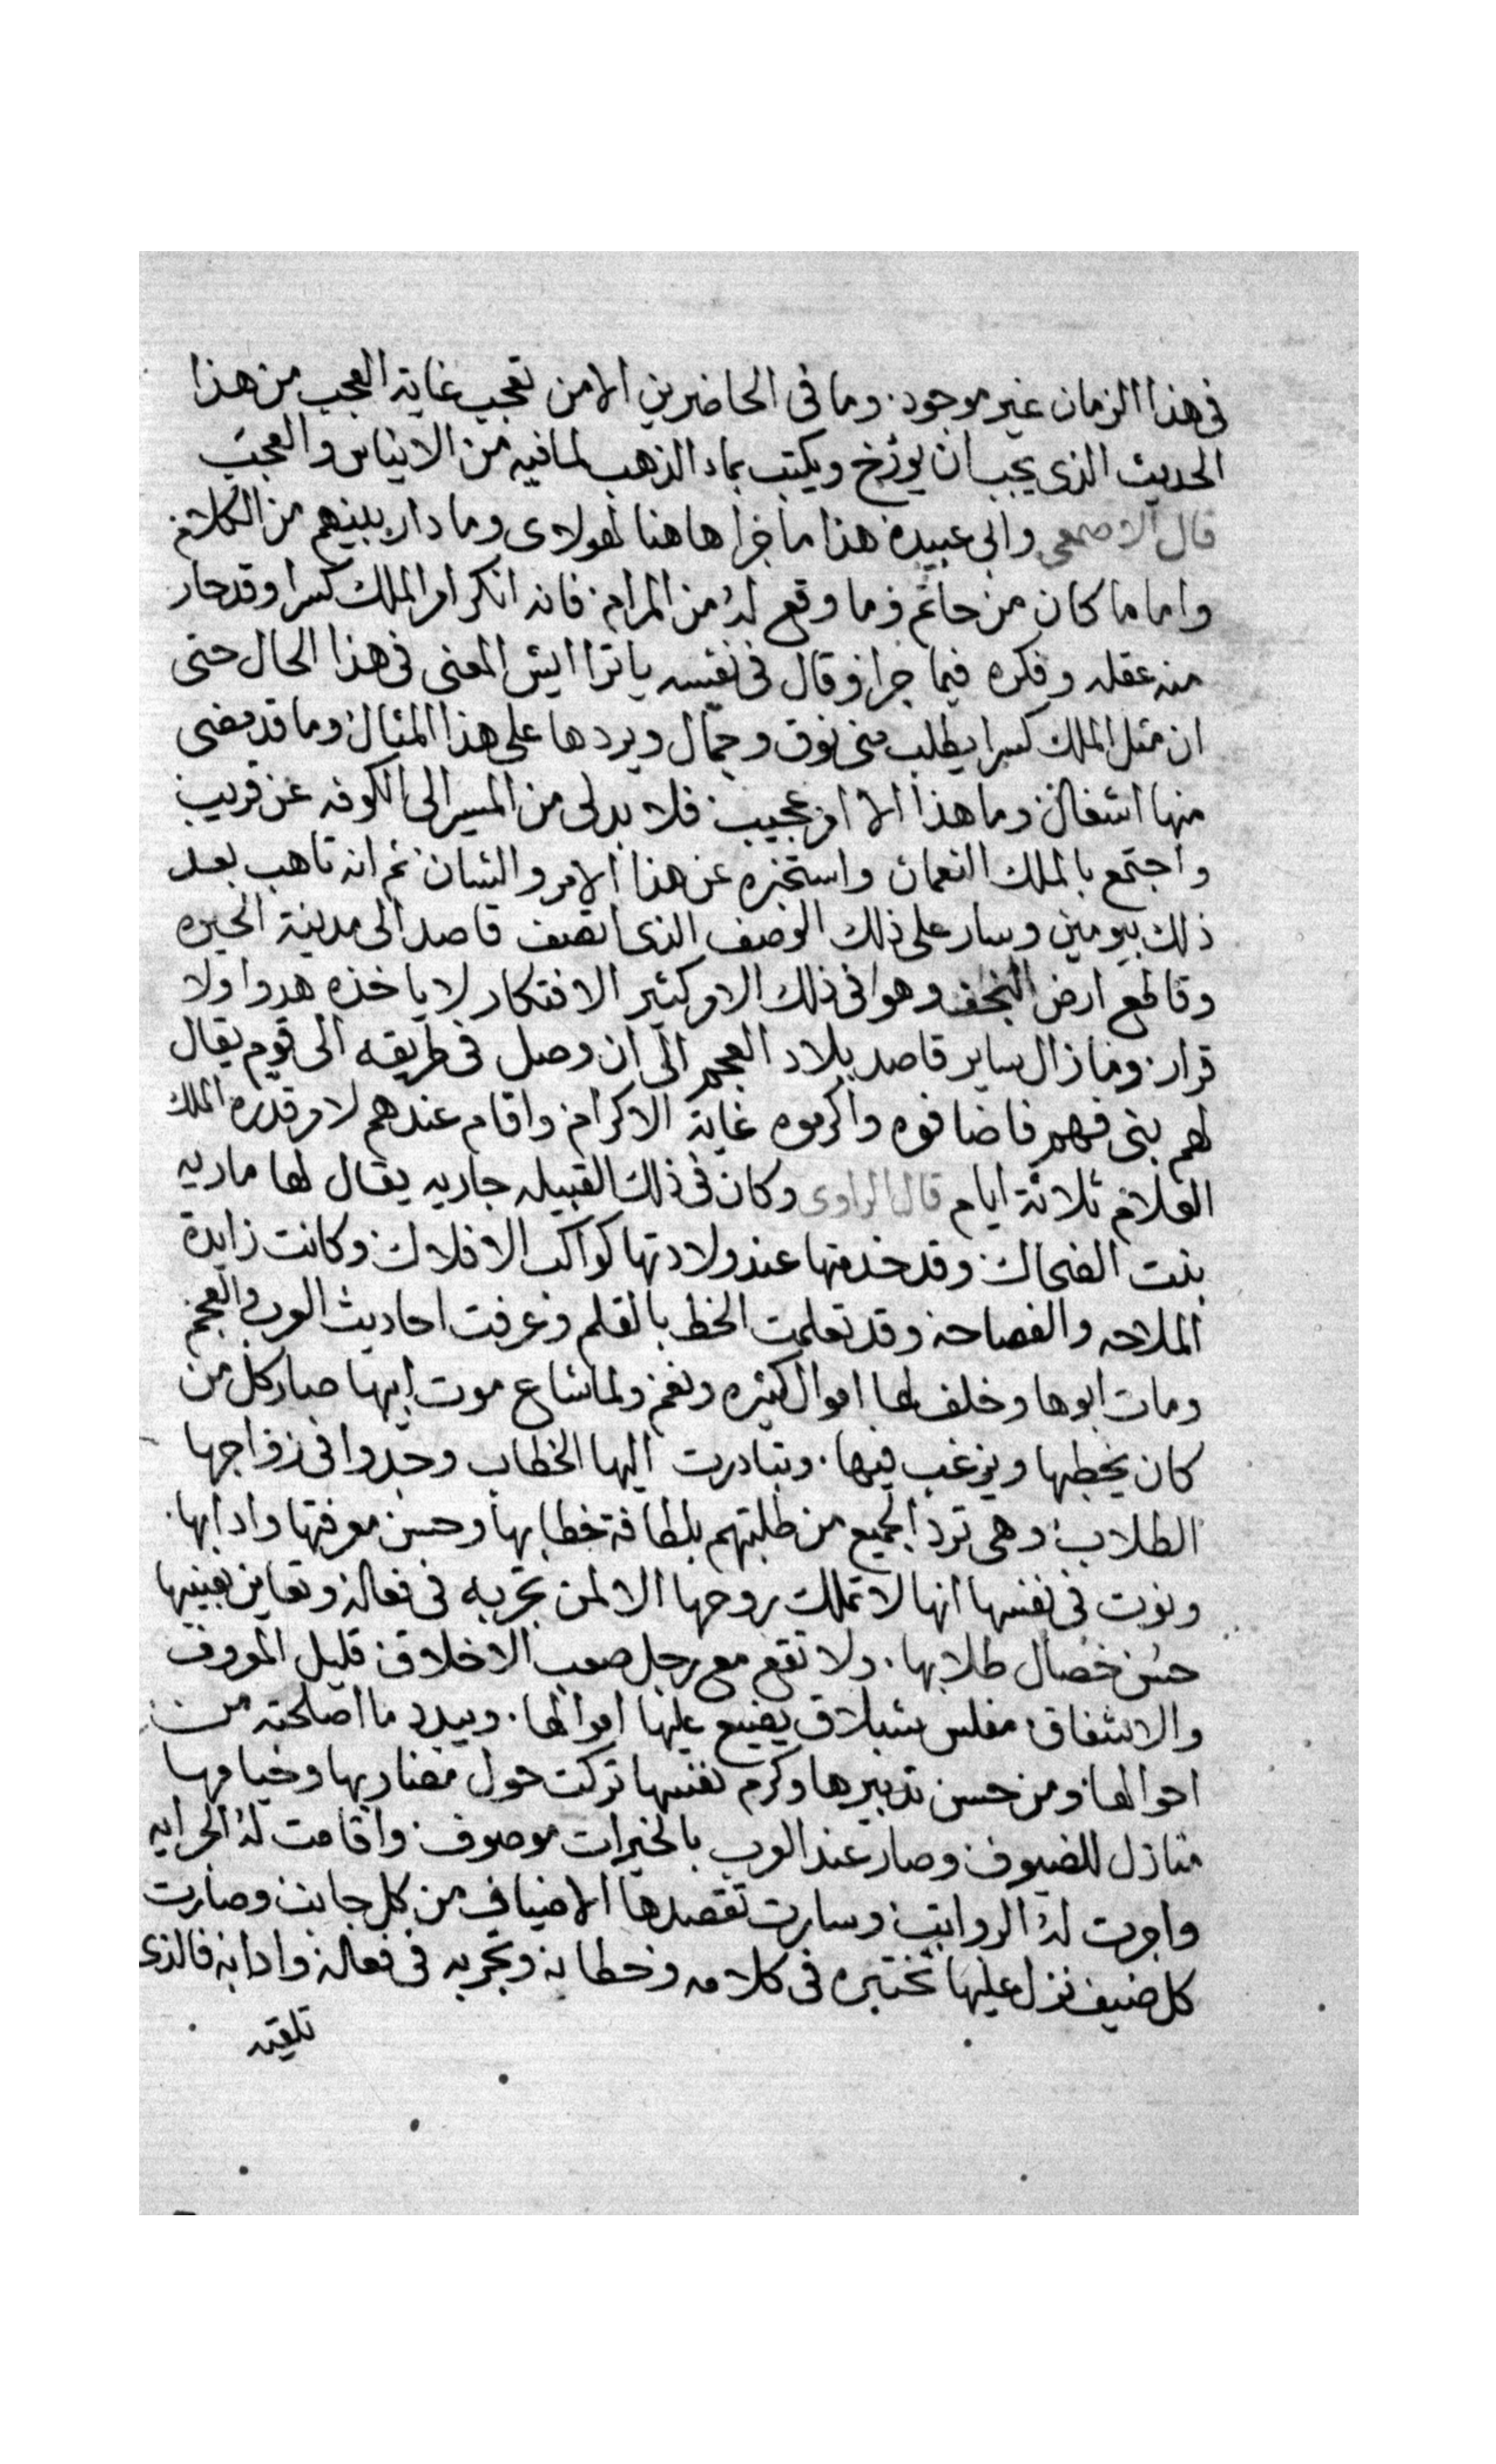 فى هذا الزمان غير موجود. وما فى الحاضرين الا من تعجب غاية العجب من هذا
الحديث الذى يجب ان يورخ ويكتب بماء الذهب لما فيه من الايناس والعجب
قال الاصمعى وابى عبيدة هذا ما جرا هاهنا لهولاى وما دار بينهم من الكلام
واما ما كان من حاتم وما وقع له من المرام فانه انكر امر الملك كسرا وقد حار
منه عقله وفكره فيما جرا وقال فى نفسه يا ترا ايش المعنى فى هذا الحال حتى
ان مثل الملك كسرا يطلب منى نوق وجمال ويردها على هذا المثال وما قد مضى
منها اشغال وما هذا الا امر عجيب فلا بد لى من المسير الى الكوفه عن قريب
واجتمع بالملك النعمان واستخبره عن هذا الامر والشان ثم انه تاهب بعد
ذلك بيومين وسار على ذلك الوصف الذى اتصف قاصد الى مدينة الحيره
وقاطع ارض النجف وهوا فى ذلك الامر كثير الافتكار لا ياخذه هدوا ولا
قرار وما زال ساير قاصد بلاد العجم الى ان وصل فى طريقه الى قوم يقال
لهم بنى فهم فاضافوه واكرموه غاية الاكرام واقام عندهم لامر قدره الملك
العلام ثلاثة ايام قال الراوى وكان فى ذلك القبيله جاريه يقال لها ماريه
بنت الضحاك وقد خدمتها عند ولادتها كواكب الافلاك وكانت زايدة
الملاحه والفصاحه وقد تعلمت الخط بالقلم وعرفت احاديث العرب والعجم
ومات ابوها وخلف لها اموال كثيره ونعم ولما شاع موت ابيها صار كل من
كان يخطبها ويرغب فيها. وتبادرت اليها الخطاب وجدوا فى زواجها
الطلاب وهى ترد الجميع من طلبتهم بلطافة خطابها وحسن معرفتها وادابها.
ونوت فى نفسها انها لا تملك روحها الا لمن تجربه فى فعاله وتعاين بعينيها
حسن خصال طلابها. ولا تقع مع رجل صعب الاخلاق قليل المعروف
والاشفاق مفلس شبلاق يضيع عليها اموالها. ويبدد ما اصلحته من
احوالها ومن حسن تدبيرها وكرم نفسها تركت حول مضاربها وخيامها
منازل للضيوف وصار عند العرب بالخيرات موصوف واقامت له الجرايه
واجرت له الرواتب وسارت تقصدها الاضياف من كل جانب وصارت
كل ضيف نزل عليها تختبره فى كلامه وخطابه وتجربه فى فعاله وادابه فالذى
تلقيه